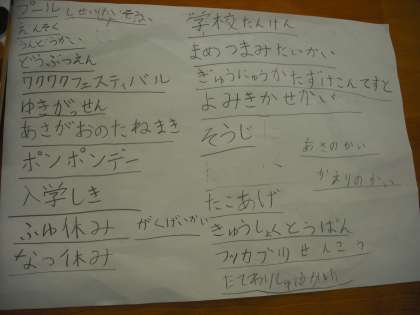 プール
えんそく
うんどうかい
どうぶつえん
ワクワクフェスティバル
ゆきがっせん
あさがおのたねまき
ポンポンデー
入学しき
ふゆ休み
なつ休み
がくげいかい
学校たんけん
まめつまみたいかい
ぎゅうにゅうかたずけこんてすと
よみきかせかい
そうじ
たこあげ
きゅうしょくとうばん
あさのかい
かえりのかい